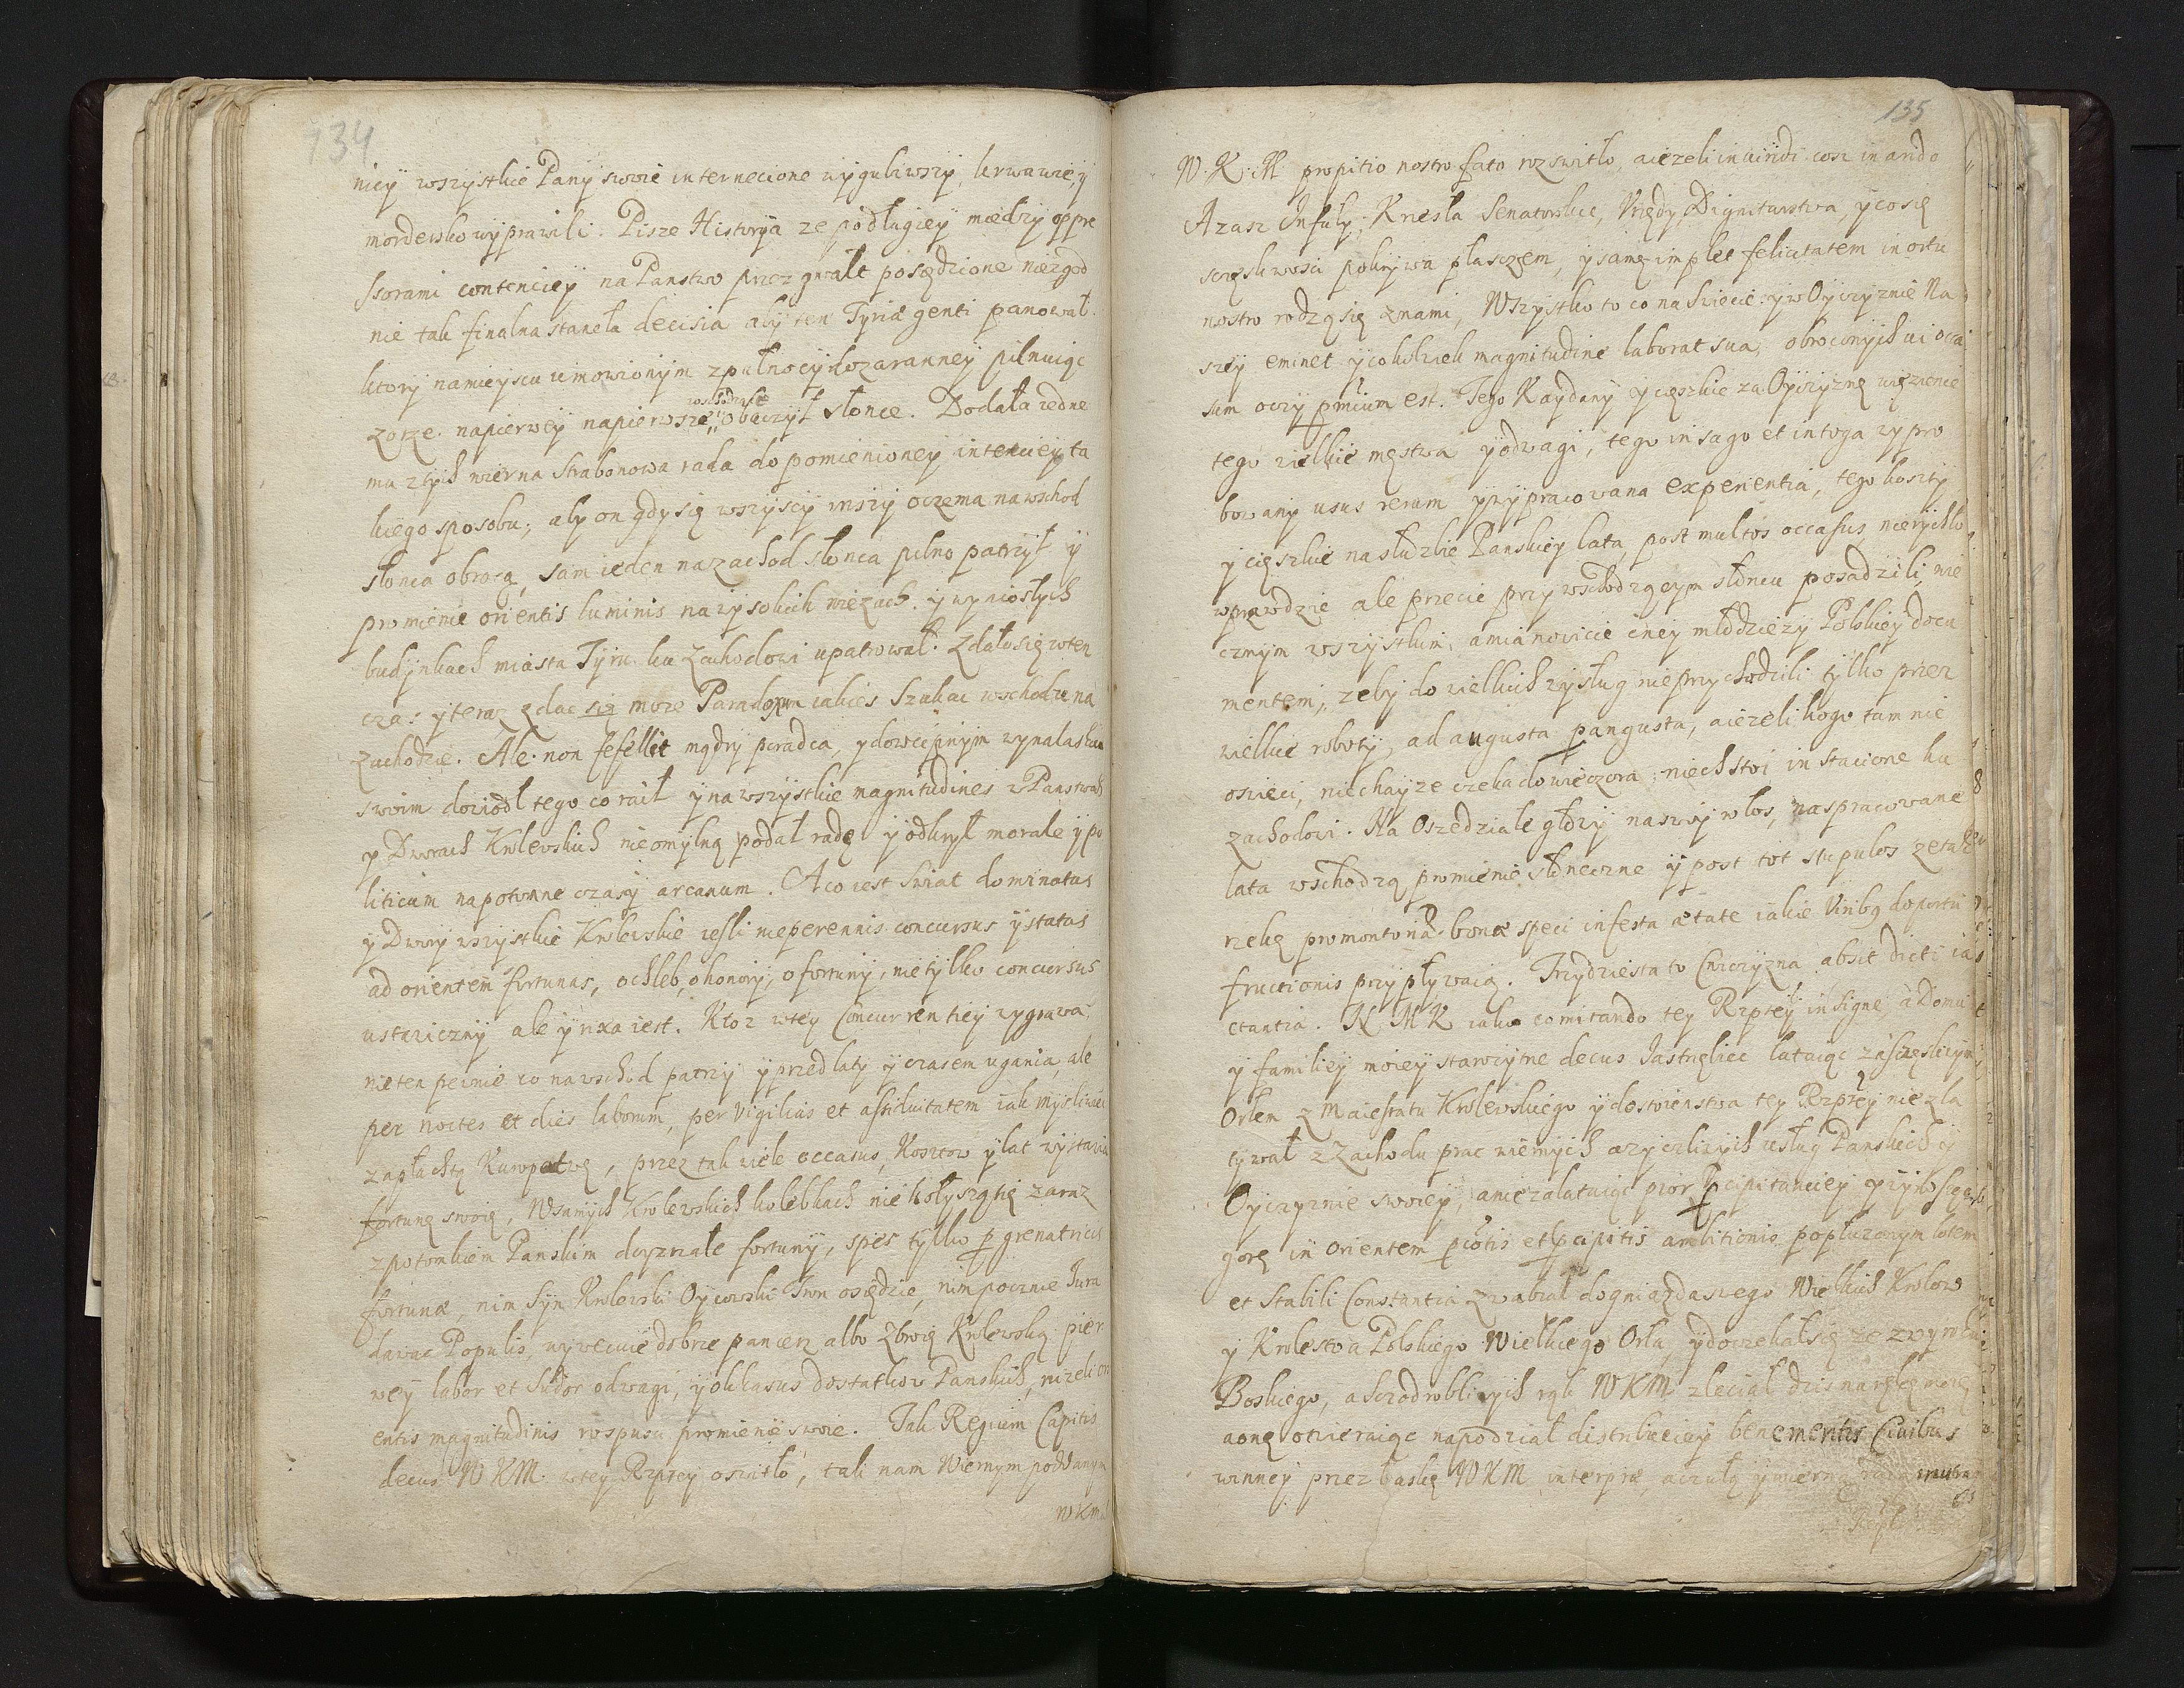 134
nicy wszystkie Pany swoie internecione wygubiwszy, krwawie, y
mordersko wyprawili. Pisze Historya ze podługiey między oppre
ssorami contenciey na Panstwo przez gwałt posędzione niezgod
nie tak finalna staneła decisia aby ten Tyriæ genti panował.
ktory namieyscu umowionym zpułnocy do zaranney pilnuiąc
zorze. napierwey napierwsze wschodzące obaczył słonce. Dodała iedne
mu ztych wierna Strabonowa rada do pomienioney intenciey ta
kiego sposobu; aby on gdy się wszyscy inszy oczema na wschod
słonca obrocą, sam ieden na zachod słonca pilno patrzył y
promienie orientis luminis na wysokich wiezach. y wyniosłych
budynkach miasta Tyru ku zachodowi upatrował. Zdało się wten
czas y teraz zdac się moze Paradoxum iakies Szukac wschodu na
zachodzie. Ale non fefellit mądry poradca, y dowcipnym wynalaskiem
swoim dowiodł tego co raił y na wszystkie magnitudines w Panstwach
y Dworach Krolewskich nieomylną podał radę y odkrył morale y po
liticum na potomne czasy arcanum. A co iest Swiat dominatus
y Dwory wszystkie Krolewskie iesli nie perennis concursus y status
ad orientem fortunas, o chleb, o honory, o fortuny, nie tylko concursus
ustawiczny ale y rixa iest. Ktoz w tey Concurrentiey wygrawa,
nie ten pewnie co na wschod patrzy y przed laty y czasem ugania, ale
per noctes et dies laborum, per vigilias et assiduitatem iak mysliwiec
za płachtą Kuropatwę, przez tak wiele occasus, Kosztow y lat wystawia
fortunę swoię, W samych Krolewskich kolebkach nie kołyszą się zaraz
z potomkiem Panskim doyrzałe fortuny, spes tylko
fortunæ, nim Syn Krolewski Oycowski Tron osiędzie, nim pocznie Jura
dawac Populis, wywecuie dobrze pancerz albo Zbroię Krolewską pier
wey labor et Sudor odwagi, y okkasus dostatkow Panskich, nizeli ori
entis magnitudinis rospusci promienie swoie. Tak Regium Capitis
decus W K M w tey Rzptey oswitło, tak nam Wiernym poddanym
WKM
135
W. K. M propitio nostro fato rozswitło, a iezeli in viridi coz in arido
A zasz Infuły, Krzesła Senatorskie, Vrzędy Dignitarstwa, y co się
scęsliwosci pokrywa płasczem, y samę implet felicitatem in ortu
nostro rodzą się znami, Wszystko to co na Swiecie: y w Oyczyznie Na
szey eminet y cokolwiek magnitudine laborat sua, obroconych
sum oczy pmium est. Tego Kaydany y cięszkie za Oyczyznę więzienie
tego wielkie męstwa y odwagi, tego in sago et in toga wypro
bowany usus rerum y wypracowana experientia, tego koszty
y cięszkie na słuzbie Panskiey lata, post multos occasus, nierychło
wprawdzie ale przecie przy wschodzącym słoncu posadzili, nie
cznym wszystkim, a mianowicie cney młodziezy Polskiey docu
mentem, zeby do wielkich wysług nie przychodzili tylko przez
wielkie roboty, ad augusta p angusta, a iezeli kogo tam nie
oswieci, niechayze czeka do wieczora, niech stoi in statione ku
zachodowi. Na Oszedziałe głowy na siwy włos, na spracowane
lata wschodzą promienie słoneczne y post tot scopulos ze tak
rzekę promontoria bonæ spei infesta ætate iakie do portu
fructionis przypływaią. Trzydziesta to Cwiczyzna absit dicti ia
ctantia. N M K iako comitando tey Rzptey insigne, a Domu
y familiey moiey starozytne decus Jastrzębiec lataiąc zascęsliwym
Orłem z Maiestatu Krolewskiego y dostoienstwa tey Rzptey nie zla
tywał z Zachodu prac wiernych a zyczliwych usług Panskich y
Oyczyznie swoiey, a nie zalatuiąc pior pcipitanciey y
gorę in Orientem et pcipitis ambitionis popłuzonym lotem
et Stabili Constantia zwabiał do gniazda swego Wielkich Krolow
y Krolestwa Polskiego Wielkiego Orła, y doczekał się ze zwyroku
Boskiego, a Szczodrobliwych rąk W K M zleciał dzis na rękę moię
a onę otwieraiąc na podział distribuciey benemeritis Civibus
winney przez łaskę W K M interpræ, a czułą y wierną